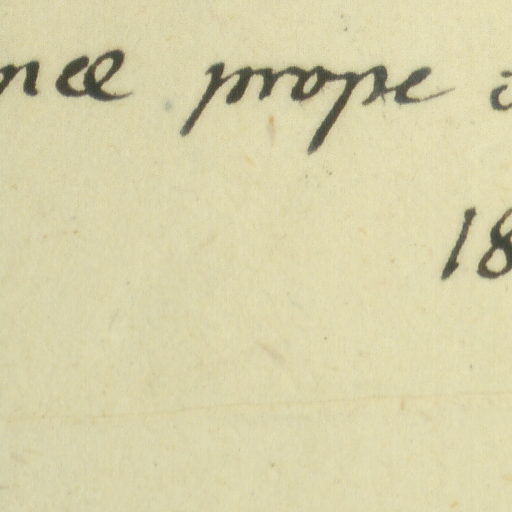 næ prope
18